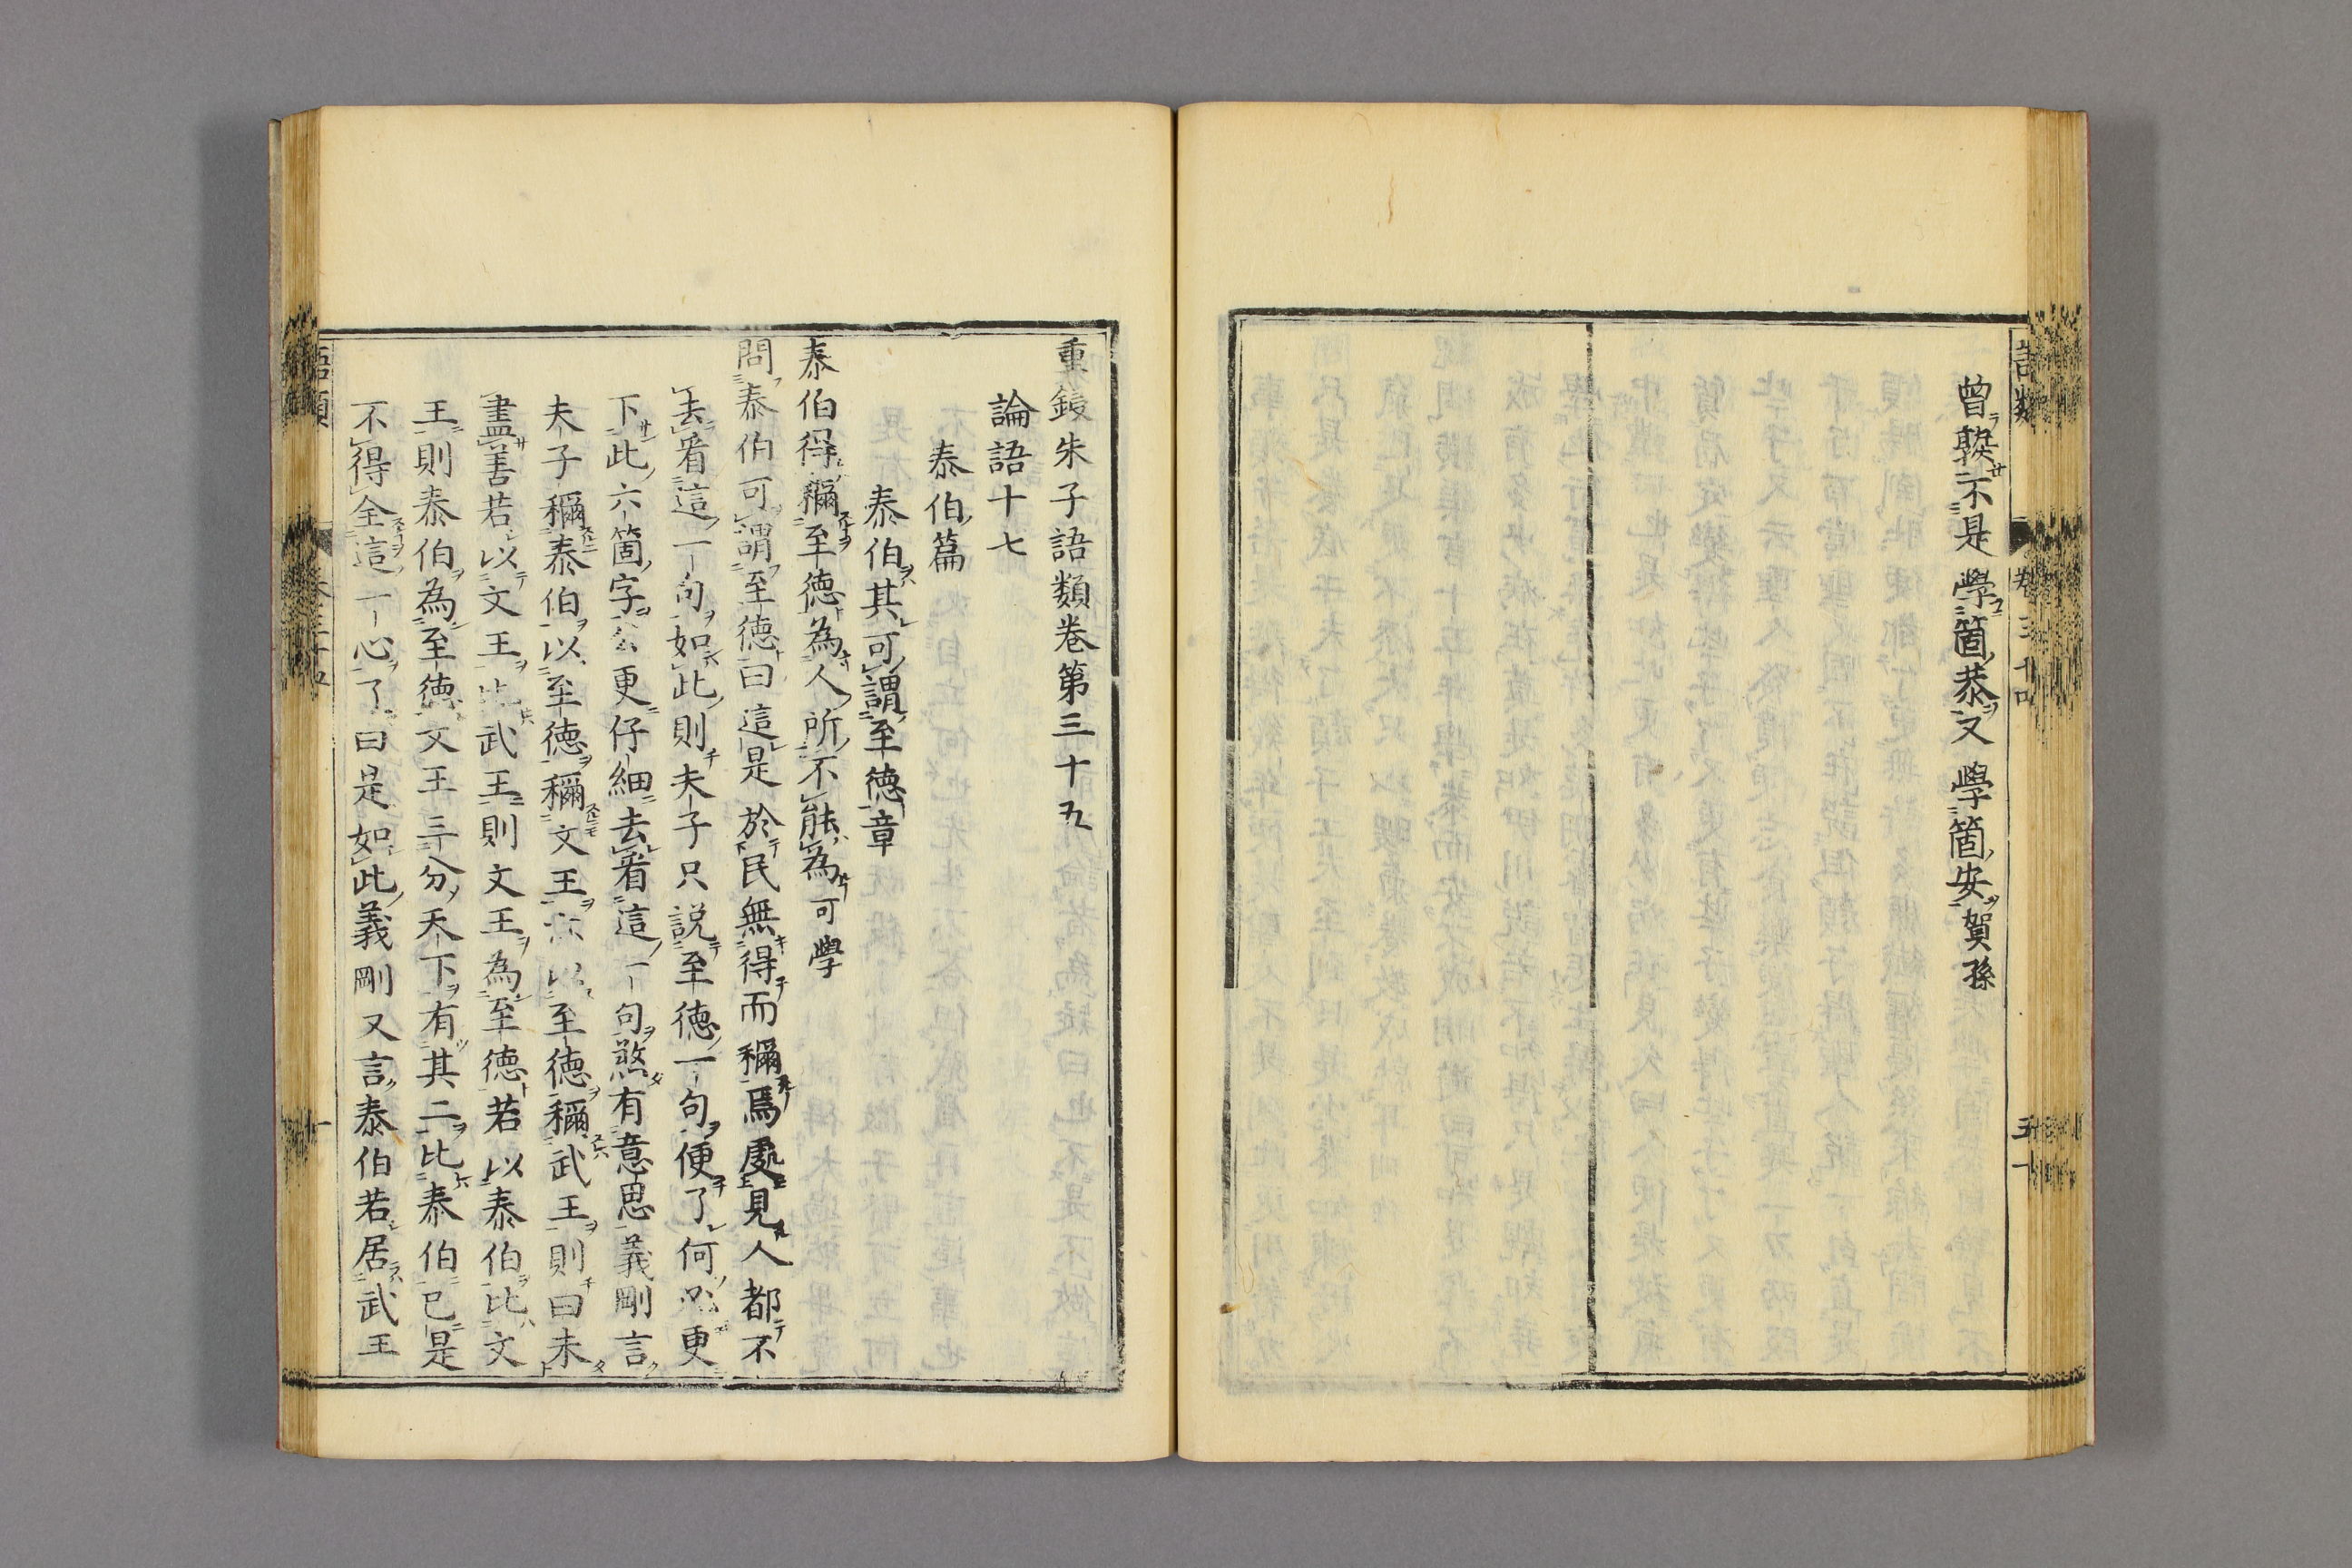 語類
卷三十四
五十
曾輟不是學箇恭又學箇安賀孫
重鋟朱子語類卷第三十五
論語十七
泰伯篇
泰伯其可謂至德章
泰伯得稱至德為人所不能為可學
問泰伯可謂至德曰這是於民無得而稱焉處見人都不
去看這一句如此則夫子只說至德一句便了何必更
下此六箇字公更仔細去看這一句煞有意思義剛言
夫子稱泰伯以至德稱文王亦以至德稱武王則曰未
盡善若以文王比武王則文王為至德若以泰伯比文
王則泰伯為至德文王三分天下有其二比泰伯已是
不得全這一心了曰是如此義剛又言泰伯若居武王
語類
卷三十五
一